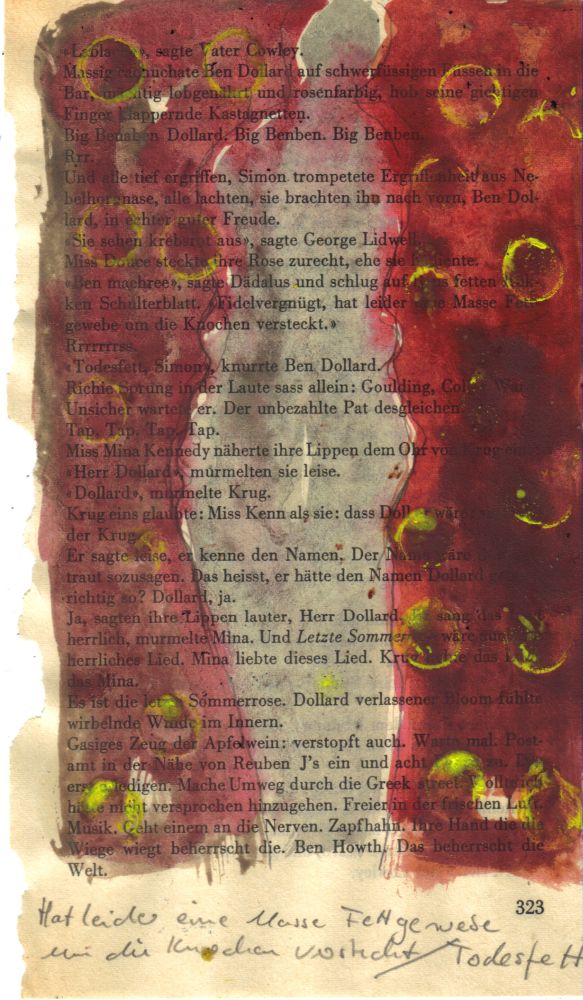 «Lablache», sagte Vater Cowley.
Massig cachuchate Ben Dollard auf schwerfüssigen Füssen in die
Bar, mächtig lobgenährt und rosenfarbig, hob seine gichtigen
Finger klappernde Kastagnetten.
Big Benaben Dollard. Big Benben. Big Benben.
Rrr.
Und alle tief ergriffen, Simon trompetete Ergriffenheit aus Ne-
belhornnase, alle lachten, sie brachten ihn nach vorn, Ben Dol-
lard, in echter guter Freude.
«Sie sehen krebsrot aus», sagte George Lidwell.
Miss Douce steckte ihre Rose zurecht, ehe sie bediente.
«Ben machree», sagte Dädalus und schlug auf fetten
ken Schulterblatt. «Fidelvergnügt, hat leider eine Masse Fett-
gewebe um die Knochen versteckt.»
Rrrrrrrss.
«Todesfett, Simon», knurrte Ben Dollard.
Richie Sprung in der Laute sass allein: Goulding,
Unsicher wartete er. Der unbezahlte Pat desgleichen.
Tap. Tap. Tap. Tap.
Miss Mina Kennedy näherte ihre Lippen dem Ohr von Krug eins.
«Herr Dollard», murmelten sie leise.
«Dollard», murmelte Krug.
Krug eins glaubte: Miss Kenn als sie: dass Dollard wäre:
der Krug.
Er sagte leise, er kenne den Namen. Der Name wäre
traut sozusagen. Das heisst, er hätte den Namen Dollard
richtig so? Dollard, ja.
Ja, sagten ihre Lippen lauter, Herr Dollard. sang das
herrlich, murmelte Mina. Und Letzte Sommerrose wäre
herrliches Lied. Mina liebte dieses Lied. Krug das
das Mina.
Es ist die letzte Sommerrose. Dollard verlassener Bloom fühlte
wirbelnde Winde im Innern.
Gasiges Zeug der Apfelwein: verstopft auch. Warte mal. Post-
amt in der Nähe von Reuben J's ein und acht zu.
erledigen. Mache Umweg durch die Greek street. Wollte ich
hätte nicht versprochen hinzugehen. Freier in der frischen Luft.
Musik. Geht einem an die Nerven. Zapfhahn. Ihre Hand die die
Wiege wiegt beherrscht die. Ben Howth. Das beherrscht die
Welt.
323
Hat leider eine Masse Fettgewebe
um die Knochen versteckt / Todesfett